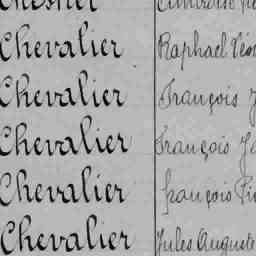 Chevalier Raphaël
Chevalier François
Chevalier François
Chevalier François
Chevalier Jules Auguste